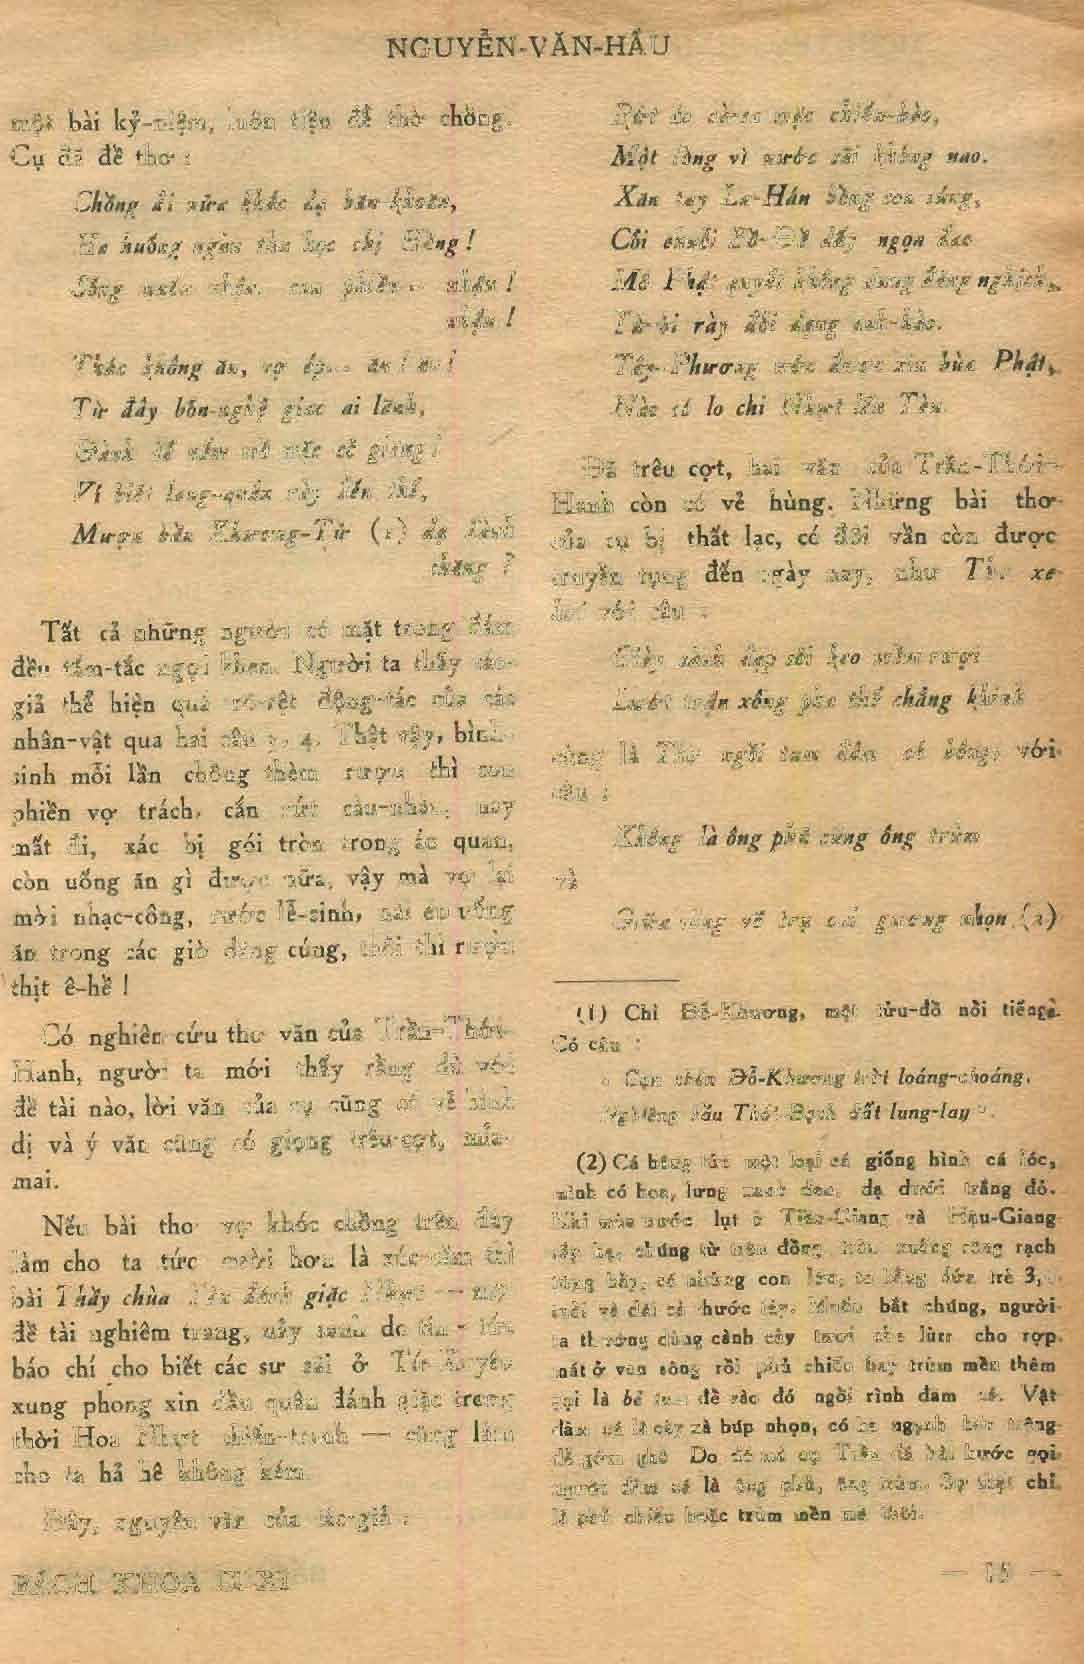 NGUYỄN-VĂN-HẦU
một bài kỷ-niệm, luôn tiện để thờ chồng.
Cụ đã đề thơ :
Chồng đi nữa khắc dạ băn-khoăn,
Há huống ngàn thu học chị Hằng !
Sống muốn nhậu, con phiền... nhậu !
nhậu !
Thác không ăn, vợ ép... ăn ! ăn !
Từ đây bổn-nghệ giao ai lãnh,
Đành để nấm mồ mặc cỏ giăng !
Ví biết lang-quân này đến thế,
Mượn bần Khương-Tử (1) dạ đành
chăng ?
Tất cả những người có mặt trong đám
đều tấm-tắc ngợi khen. Người ta thấy tác-
giả thể hiện quá rõ-rệt động-tác của các
nhân-vật qua hai câu 3, 4. Thật vậy, bình-
sinh mỗi lần chồng thèm rượu thì con
phiền vợ trách, cắn rứt càu-nhàu, nay
mất đi, xác bị gói tròn trong áo quan,
còn uống ăn gì được nữa, vậy mà vợ lại
mời nhạc-công, rước lễ-sinh, nài ép uống
ăn trong các giờ dâng cúng, thôi thì rượu
thịt ê-hề !
Có nghiên cứu thơ văn của Trần-Thới-
Hanh, người ta mới thấy rằng dù với
đề tài nào, lời văn của cụ cũng có vẻ bình
dị và ý văn cũng có giọng trêu-cợt, mỉa-
mai.
Nếu bài thơ vợ khóc chồng trên đây
làm cho ta tức cười hơn là xúc-cảm thì
bài Thầy chùa đánh giặc — một
đề tài nghiêm trang, nảy sanh do tin - tức
báo chí cho biết các sư sãi ở
xung phong xin đầu quân đánh giặc trong
thời Hoa Nhựt chiến-tranh — cũng làm
cho ta hả hê không kém.
Đây, nguyên văn của tác-giả :
BÁCH KHOA
Rứt áo cà-sa mặc chiến-bào,
Một lòng vì nước sãi không nao.
Xăn tay La-Hán bồng con súng,
Cởi chuỗi Bồ-Đề lấy ngọn đao
Mô Phật quyết không dung đảng nghịch,
Từ-bi rày đổi dạng anh-hào.
Tây-Phương ước được xin bùa Phật,
Nào có lo chi Nhựt
Đã trêu cợt, hai văn của Trần-Thới-
Hanh còn có vẻ hùng. Những bài thơ
của cụ bị thất lạc, có đôi vần còn được
truyền tụng đến ngày nay, như Thơ xe
hơi với câu :
Giày sành đẹp sãi kẹo mềm rượi
Lướt trận xông pha thế chẳng khinh
cùng là Thơ ngồi tum đâm cá bông, với
câu :
Không là ông phủ cũng ông trùm
và
Giữa vùng võ trụ chỉ gương nhọn (2)
(1) Chỉ Đỗ-Khương, một tửu-đồ nổi tiếng.
Có câu :
« Cạn chén Đỗ-Khương trời loáng-choáng.
Nghiêng bầu Thái-Bạch đất lung-lay ».
(2) Cá bông tức một loại cá giống hình cá lóc,
mình có hoa, lưng xanh đen, dạ dưới trắng đỏ.
Khi mùa nước lụt ở Tiền-Giang và Hậu-Giang
sắp hạ, chúng từ trên đồng trôi xuống sông rạch
từng bầy, có những con lớn, to bằng đứa trẻ 3,
tuổi và dài cả thước tây. Muốn bắt chúng, người
ta thường dùng cành cây tươi che lùm cho rợp
mát ở ven sông rồi phủ chiếu hay trùm mền thêm
gọi là bẻ tum để vào đó ngồi rình đâm cá. Vật
đâm cá là cây xà búp nhọn, có ba ngạnh bén
dễ gớm ghê. Do đó mà cụ Trần đã hài hước gọi
người đâm cá là ông phủ, ông trùm. Sự thật chỉ
là phủ chiếu hoặc trùm mền mà thôi.
— 15 —